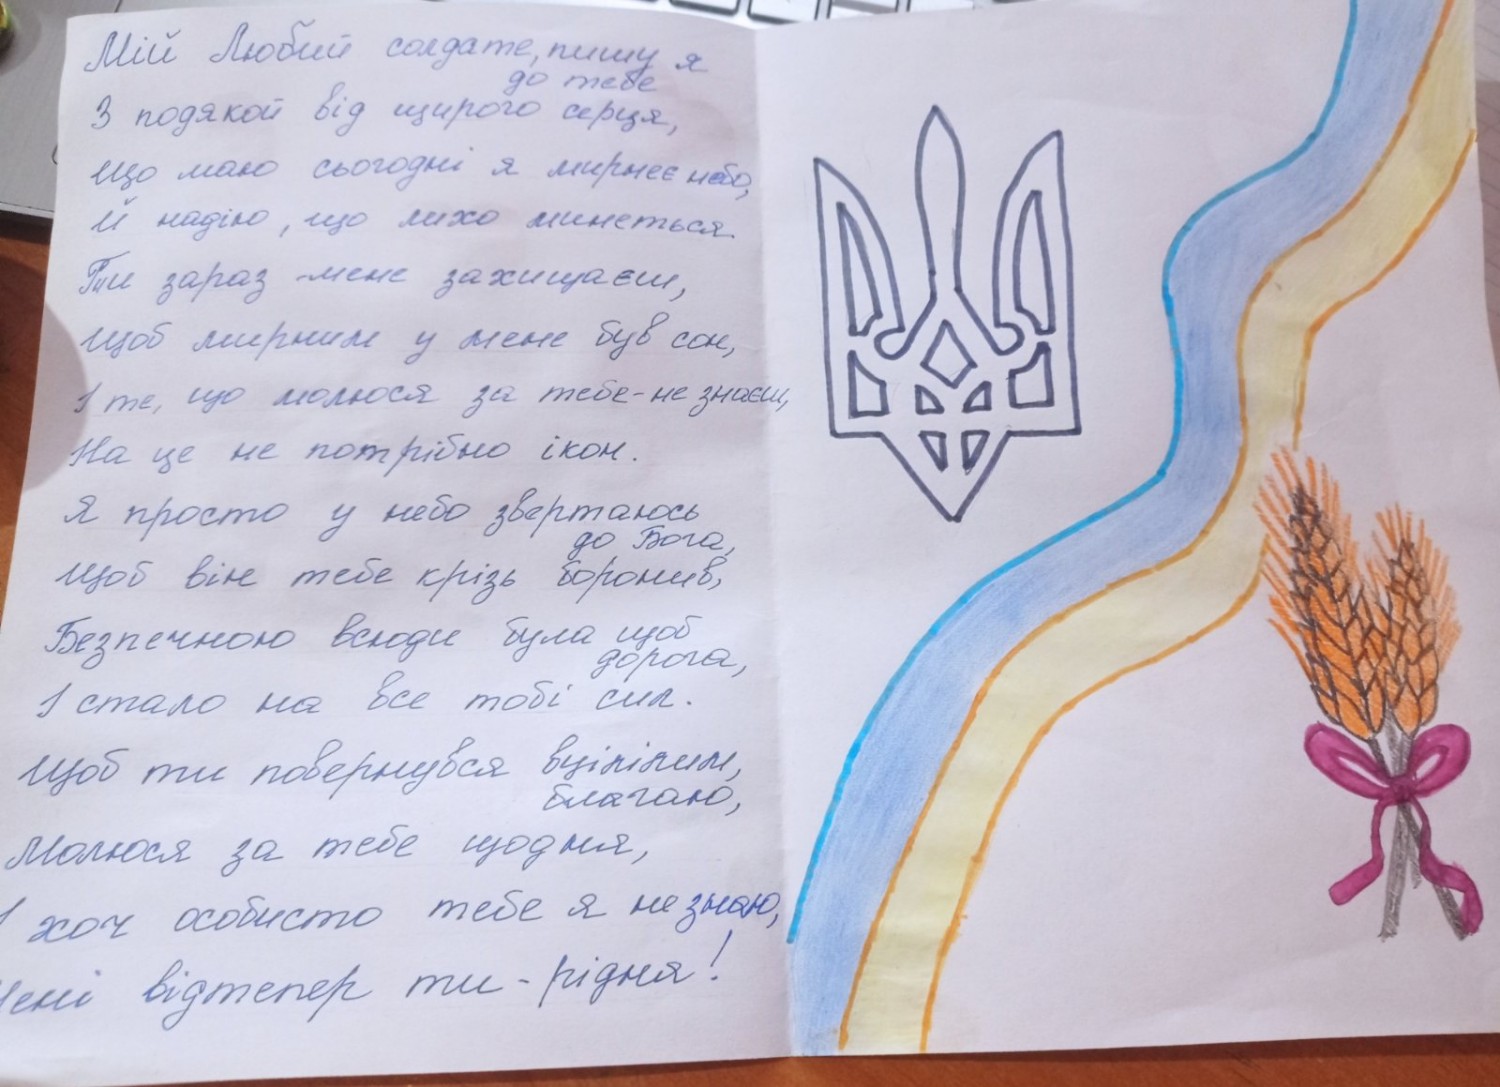 Мій Любий солдате, пишу я
до тебе
З подякой від щирого серця,
Що маю сьогодні я мирнеє небо,
Й надію, що лихо минеться.
Ти зараз мене захищаєш,
Щоб мирним у мене був сон,
І те, що молюся за тебе - не знаєш,
На це не потрібно ікон.
Я просто у небо звертаюсь
до Бога,
Щоб він тебе крізь боронив,
Безпечною всюди була щоб
дорога,
І стало на все тобі сил.
Щоб ти повернувся вцілілим,
благаю,
Молюся за тебе щодня,
І хоч особисто тебе я не знаю,
Мені відтепер ти - рідня!